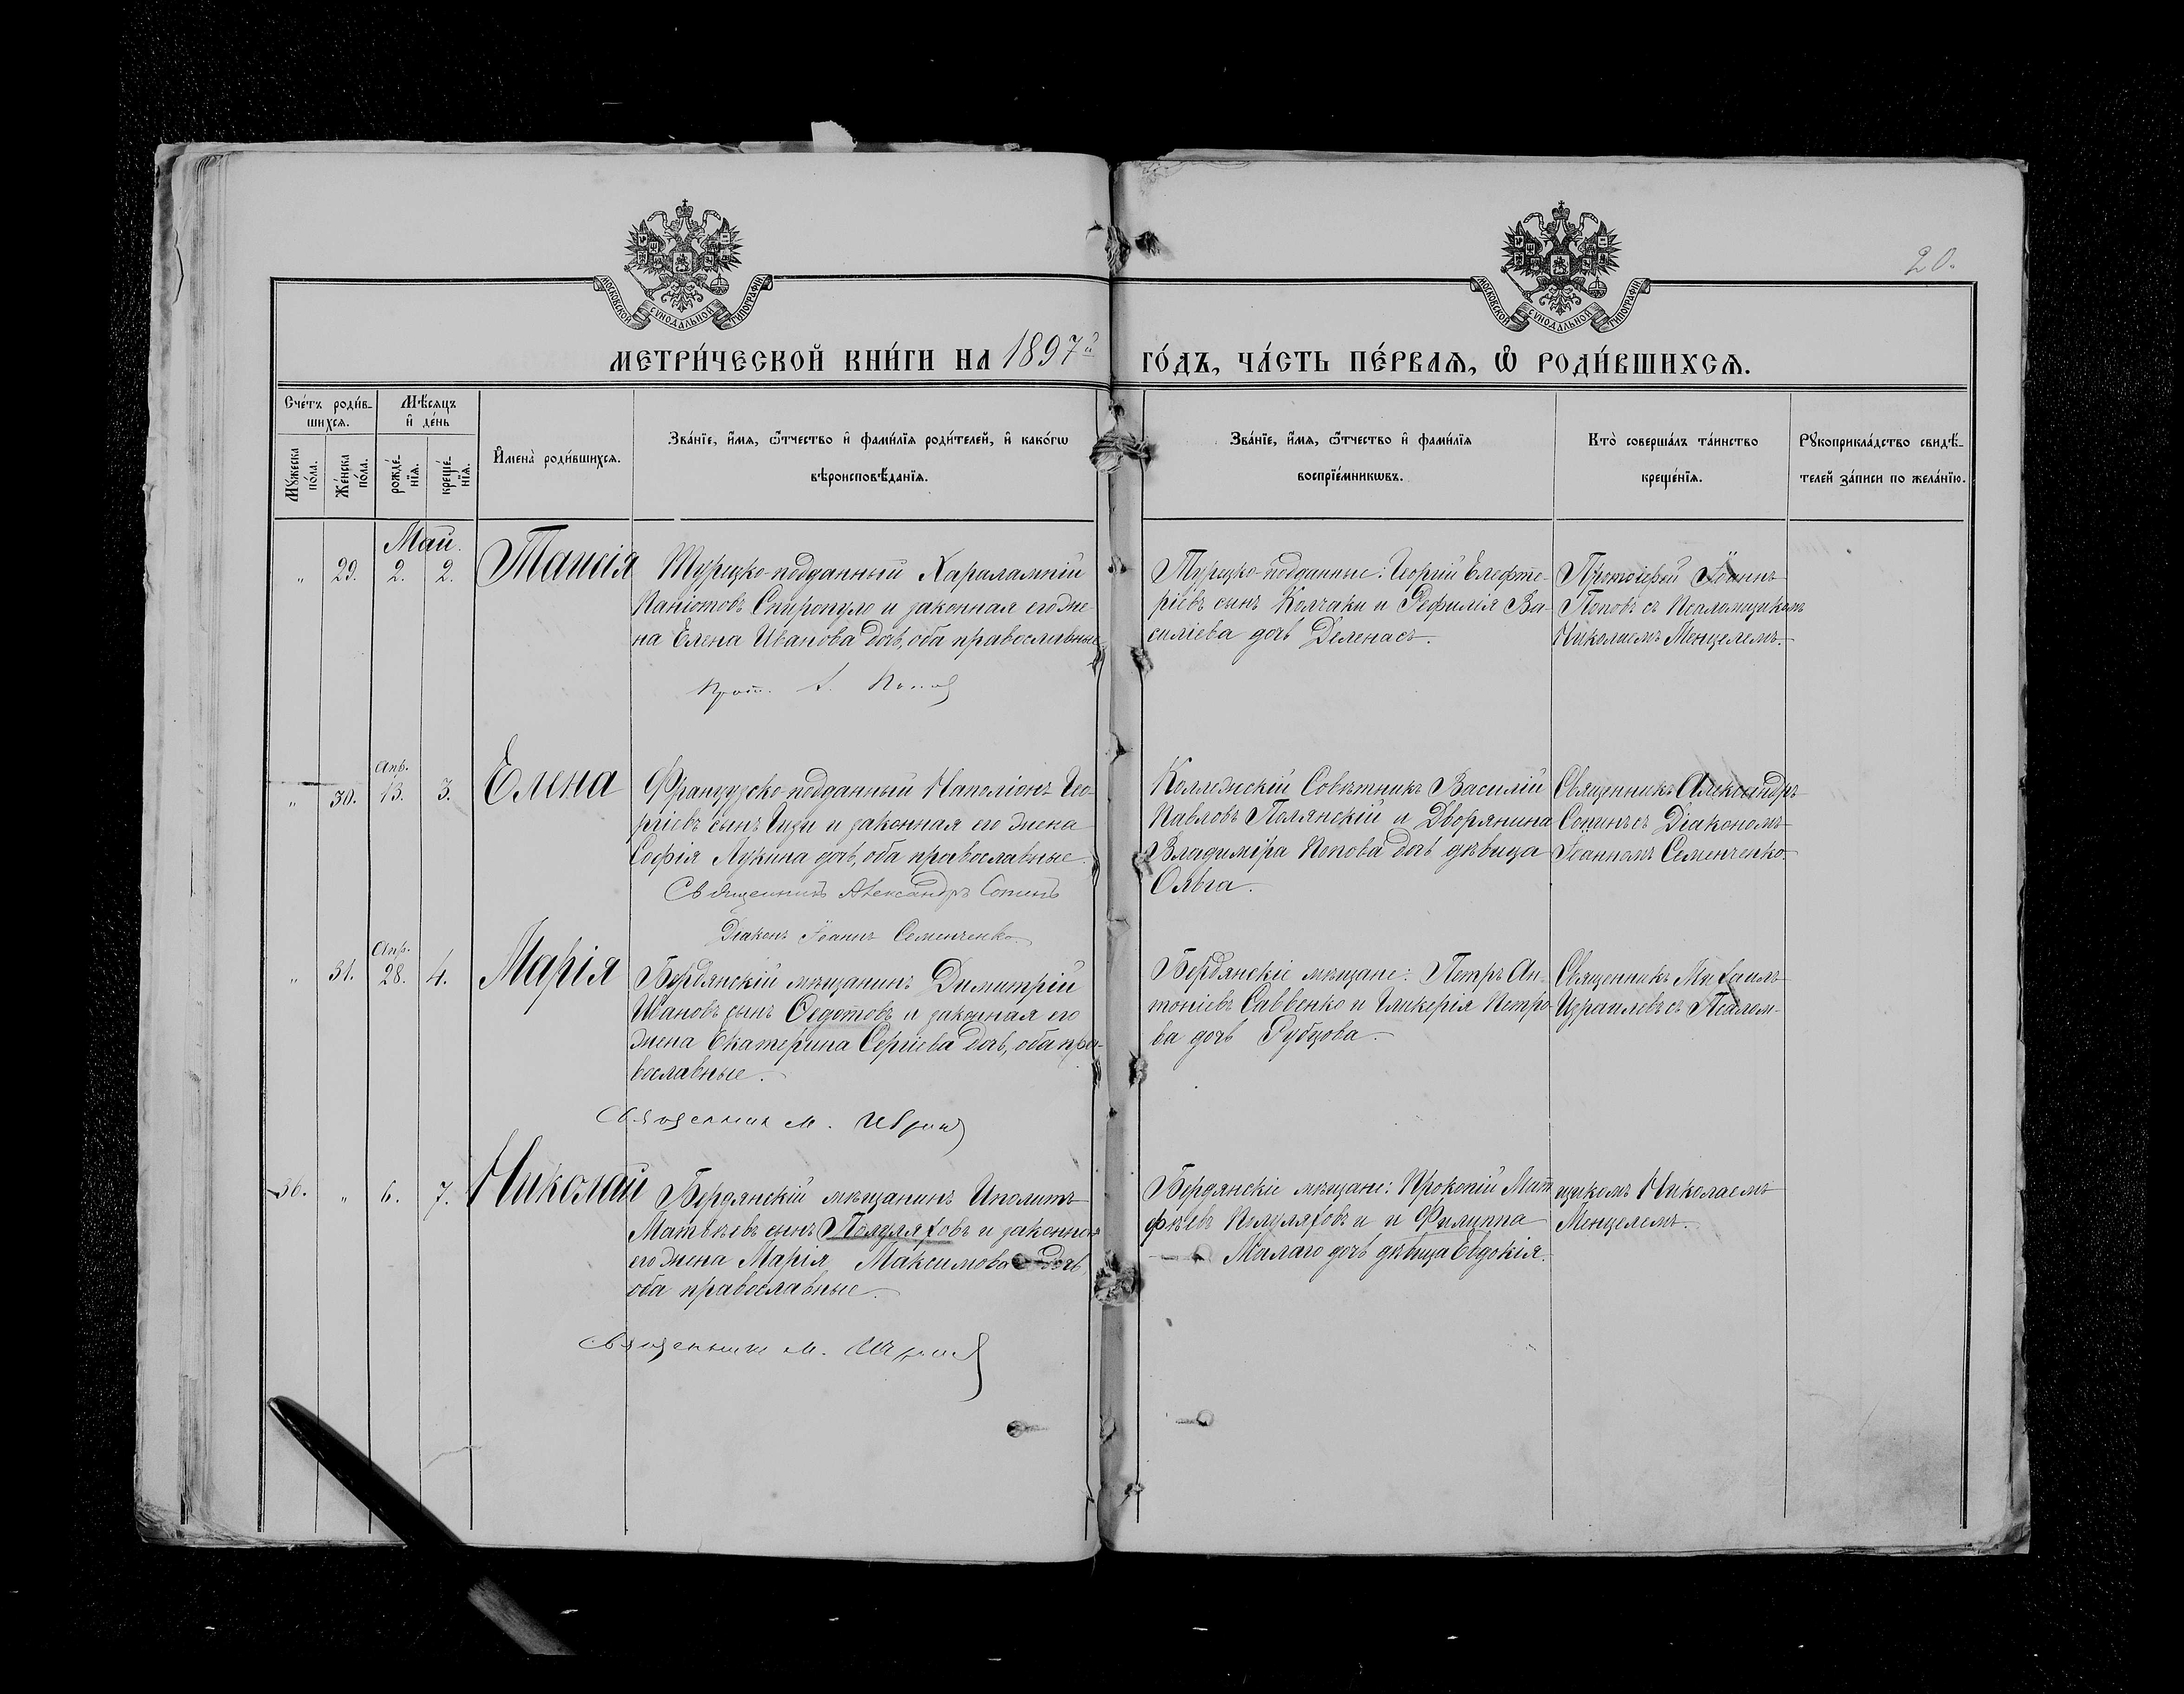 20.
МОСКОВСКОЙ СУНОДАЛЬНОЙ ТИПОГРАФІИ
МОСКОВСКОЙ СУНОДАЛЬНОЙ ТИПОГРАФІИ
МЕТРИ́ЧЕСКОЙ КНИ́ГИ НА 1897й ГО́ДЪ, ЧА́СТЬ ПЕ́РВАѦ, Ѽ РОДИ́ВШИХСѦ.
Сче́тъ роди́в-
шихсѧ.
Му́жеска по́ла.
Же́нска по́ла.
Мѣ́сѧцъ
и҆ де́нь
рожде́-
нїѧ.
креще́-
нїѧ.
И҆мена̀ роди́вшихсѧ.
Зва́нїе, и҆́мѧ, ѻ҆́тчество и҆ фами́лїѧ роди́телей, и҆ како́гѡ
вѣроисповѣ́данїѧ.
Зва́нїе, и҆́мѧ, ѻ҆́тчество и҆ фами́лїѧ
воспрїе́мникѡвъ.
Кто̀ соверша́лъ та́инство
креще́нїѧ.
Рꙋкоприкла́дство свидѣ́-
телей за́писи по жела́нїю.
Май.
" 29. 2. 2. Таисія
Турецко-подданный Харалампій
Паніотовъ Спиропуло и законная его же-
на Елена Иванова дочь, оба православные
Прот. І. Попов
Турецко-подданные: Георгій Елефте-
ріевъ сынъ Колчаки и Ва-
силіева дочь Деленасъ.
Протоіерей Іоаннъ
Поповъ съ Псаломщикомъ
Николаемъ Менцелемъ.
Апр.
" 30. 13. 3. Елена
Французско-подданный Наполіонъ Гео-
ргіевъ сынъ Гизи и законная его жена
Софія Лукина дочь, оба православные.
Священникъ Александръ Сопинъ
Діаконъ Іоаннъ Семенченко
Коллежскій Совѣтникъ Василій
Павловъ Полянскій и Дворянина
Владиміра Попова дочь дѣвица
Ольга.
Священникъ Александръ
Сопинъ съ Діакономъ
Іоанномъ Семенченко.
Апр.
" 31. 28. 4. Марія
Бердянскій мѣщанинъ Димитрій
Ивановъ сынъ Ѳедотовъ и законная его
жена Екатерина Сергіева дочь, оба пра-
вославные.
Священник М.
Бердянскіе мѣщане: Петръ Ан-
тоніевъ Саввенко и Гликерія Петро-
ва дочь Рубцова.
Священникъ Михаилъ
Израилевъ съ Псалом-
36. " 6. 7. Николай
Бердянскій мѣщанинъ Иполитъ
Матвѣевъ сынъ Полуляховъ и законная
его жена Марія Максимова дочь
оба православные.
Священник М.
Бердянскіе мѣщане: Прокопій Мат
фѣевъ Полуляховъ и и Филиппа
Малаго дочь дѣвица Евдокія.
щикомъ Николаемъ
Менцелемъ.